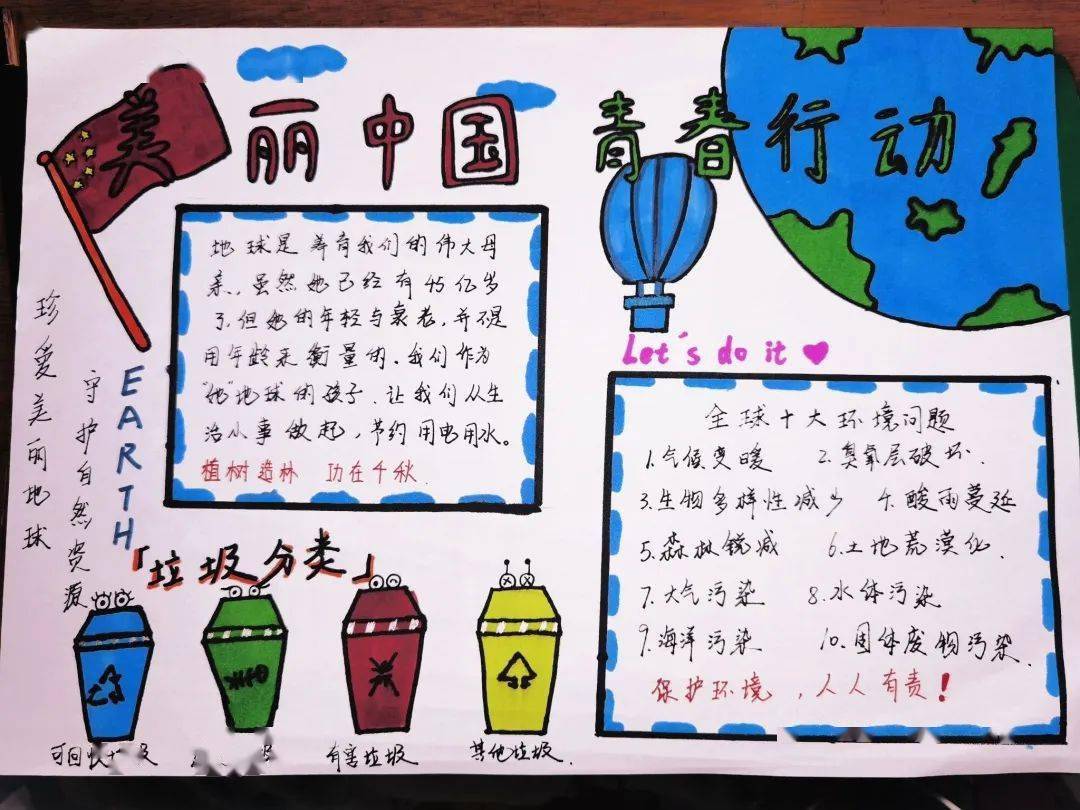 美丽中国 青春行动
珍爱美丽地球
守护自然资源
EARTH
地球是养育我们的伟大母
亲,虽然她已经有45亿岁
了.但她的年轻与衰老,并不是
用年龄来衡量的.我们作为
"她"地球的孩子.让我们从生
活小事做起,节约用电用水。
植树造林 功在千秋.
Let's do it
全球十大环境问题
1.气候变暖 2.臭氧层破坏.
3.生物多样性减少 4.酸雨蔓延
5.森林锐减 6.土地荒漠化.
7.大气污染 8.水体污染
9.海洋污染 10.固体废物污染.
保护环境,人人有责!
「垃圾分类」
可回收
有害垃圾
其他垃圾.